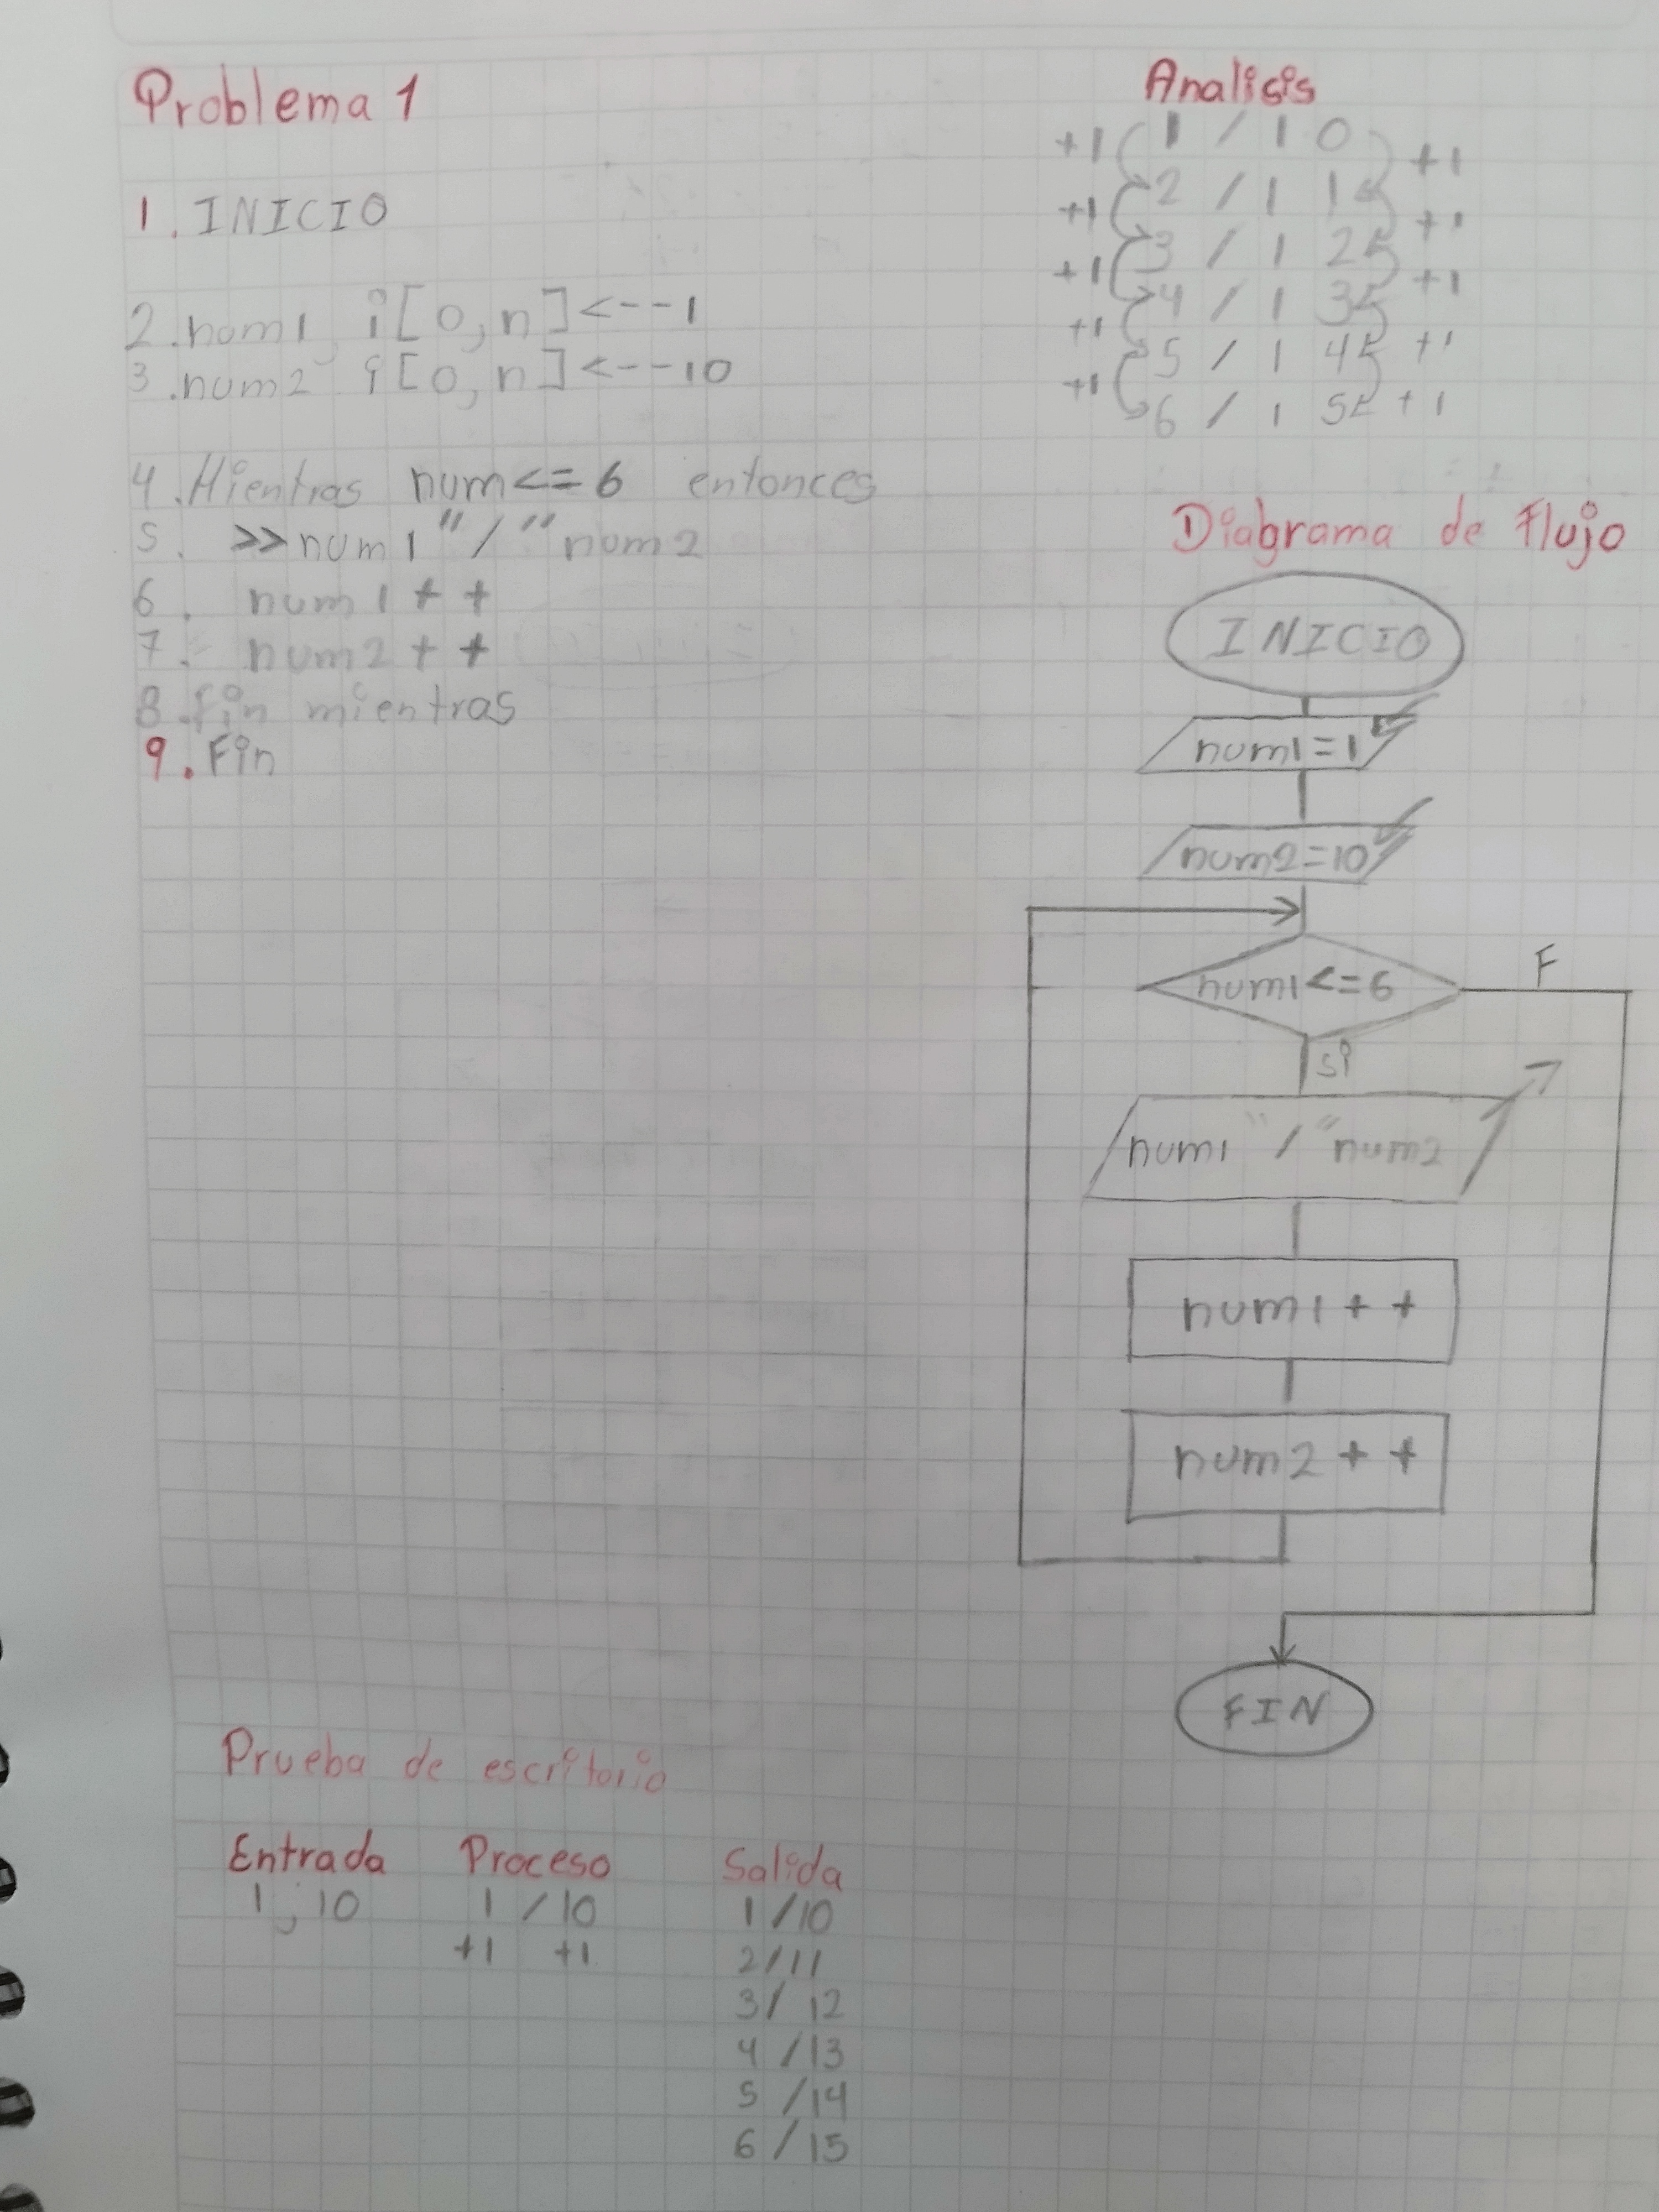 Problema 1
1. INICIO
2. num1, i[0,n]<--1
3. num2 i[0,n]<--10
4. Mientras num<=6 entonces
5. >>num1"/"num2
6. num1++
7. num2++
8. Fin mientras
9. Fin
Analisis
+1 1 / 1 0 +1
+1 2 / 1 1 +1
+1 3 / 1 2 +1
+1 4 / 1 3 +1
+1 5 / 1 4 +1
6 / 1 5
Diagrama de Flujo
INICIO
num1=1
num2=10
num1<=6 F
si
num1 "/" num2
num1++
num2++
FIN
Prueba de escritorio
Entrada Proceso Salida
1, 10 1 / 10 1 /10
+1 +1 2/11
3/ 12
4 /13
5 /14
6 /15